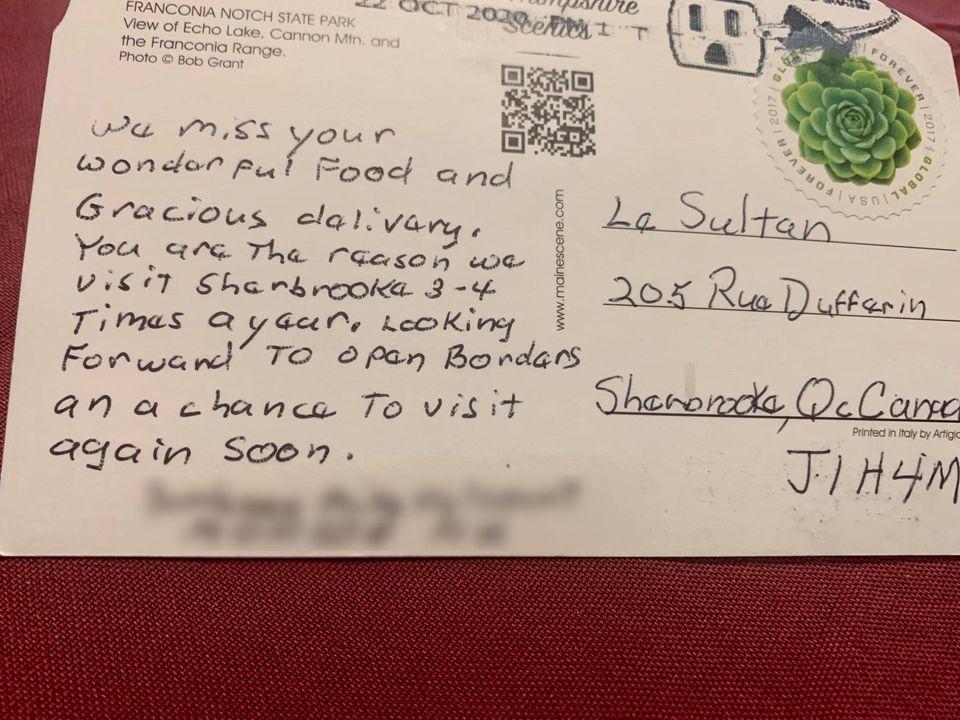 FRANCONIA NOTCH STATE PARK
View of Echo Lake, Cannon Mtn. and
the Franconia Range.
Photo © Bob Grant
22 OCT 2020 PM 1 T
Hampshire
Scenics
FOREVER | 2017 | GLOBAL | USA | FOREVER | 2017 | GLOBAL
we miss your
wonderful Food and
Gracious delivery.
You are The reason we
visit Sherbrooke 3-4
Times a year. Looking
Forward To open Borders
an a chance To visit
again soon.
www.mainescene.com
Le Sultan
205 Rue Dufferin
Sherbrooke, Qc Canad
Printed in Italy by Artigi
J1H4M